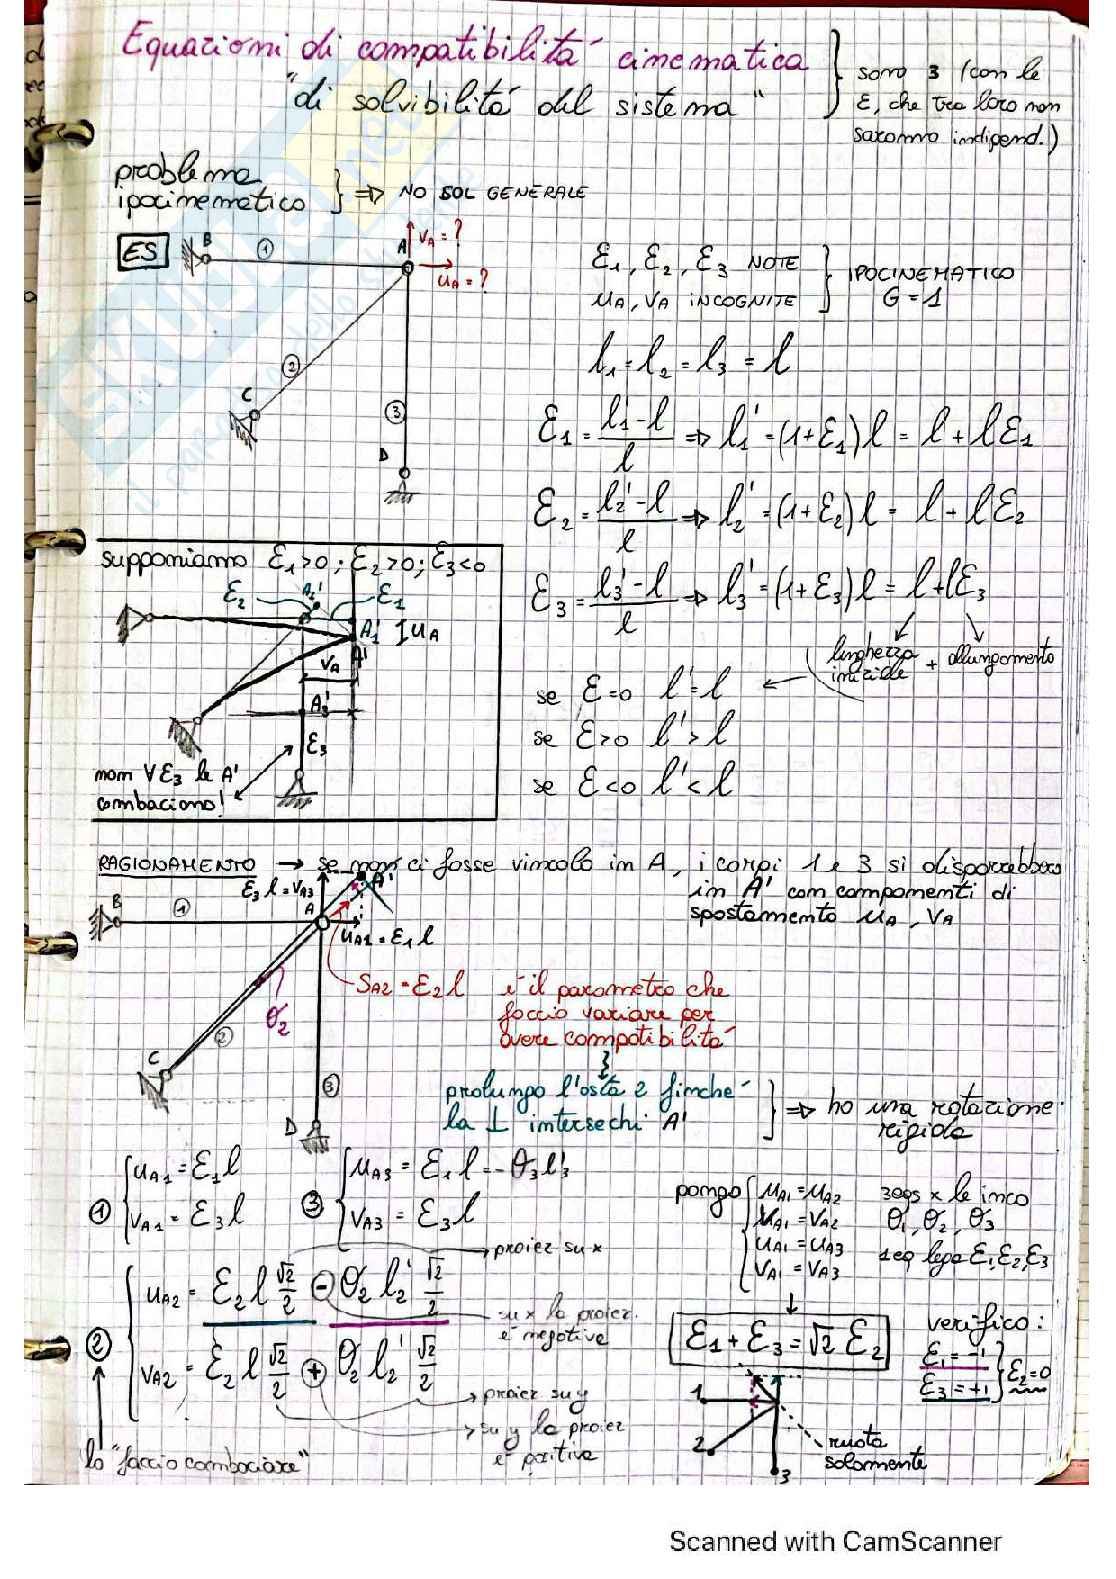 Equazioni di compatibilità cinematica
"di solvibilità del sistema"
sono 3 (con le
ε, che tra loro non
saranno indipend.)
problema
ipocinematico
=> NO SOL GENERALE
ES
B
1
A
vA = ?
uA = ?
2
C
3
D
ε1, ε2, ε3 NOTE
uA, vA INCOGNITE
IPOCINEMATICO
G=1
l1 = l2 = l3 = l
ε1 = (l1' - l)/l => l1' = (1+ε1)l = l + lε1
ε2 = (l2' - l)/l => l2' = (1+ε2)l = l + lε2
ε3 = (l3' - l)/l => l3' = (1+ε3)l = l + lε3
lunghezza
iniziale
+ allungamento
se ε=0 l'=l
se ε>0 l'>l
se ε<0 l'<l
supponiamo ε1>0; ε2>0; ε3<0
ε2
A2'
ε1
A1'
uA
vA
A'
A3'
ε3
non ∀ε3 le A'
combaciano!
RAGIONAMENTO → se non ci fosse vincolo in A, i corpi 1 e 3 si disporrebbero
in A' con componenti di
spostamento uA, vA
ε3 l = vA3
A'
B
1
A
uA1 = ε1 l
SA2 = ε2 l
è il parametro che
faccio variare per
avere compatibilità
θ2
2
C
3
D
prolungo l'asta 2 finché
la ⊥ intersechi A'
=> ho una rotazione
rigida
1
uA1 = ε1 l
vA1 = ε3 l
3
uA3 = ε1 l = -θ3 l3'
vA3 = ε3 l
pongo
uA1 = uA2
vA1 = vA2
uA1 = uA3
vA1 = vA3
3 eqs x le inco
θ1, θ2, θ3
1 eq lega ε1, ε2, ε3
proiez su x
2
uA2 = ε2 l √2/2 - θ2 l2' √2/2
su x la proiez.
è negativa
vA2 = ε2 l √2/2 + θ2 l2' √2/2
proiez su y
su y la proiez
è positiva
lo "faccio combaciare"
ε1 + ε3 = √2 ε2
verifico:
ε1 = -1
ε3 = +1
ε2 = 0
1
2
3
ruota
solamente
Scanned with CamScanner